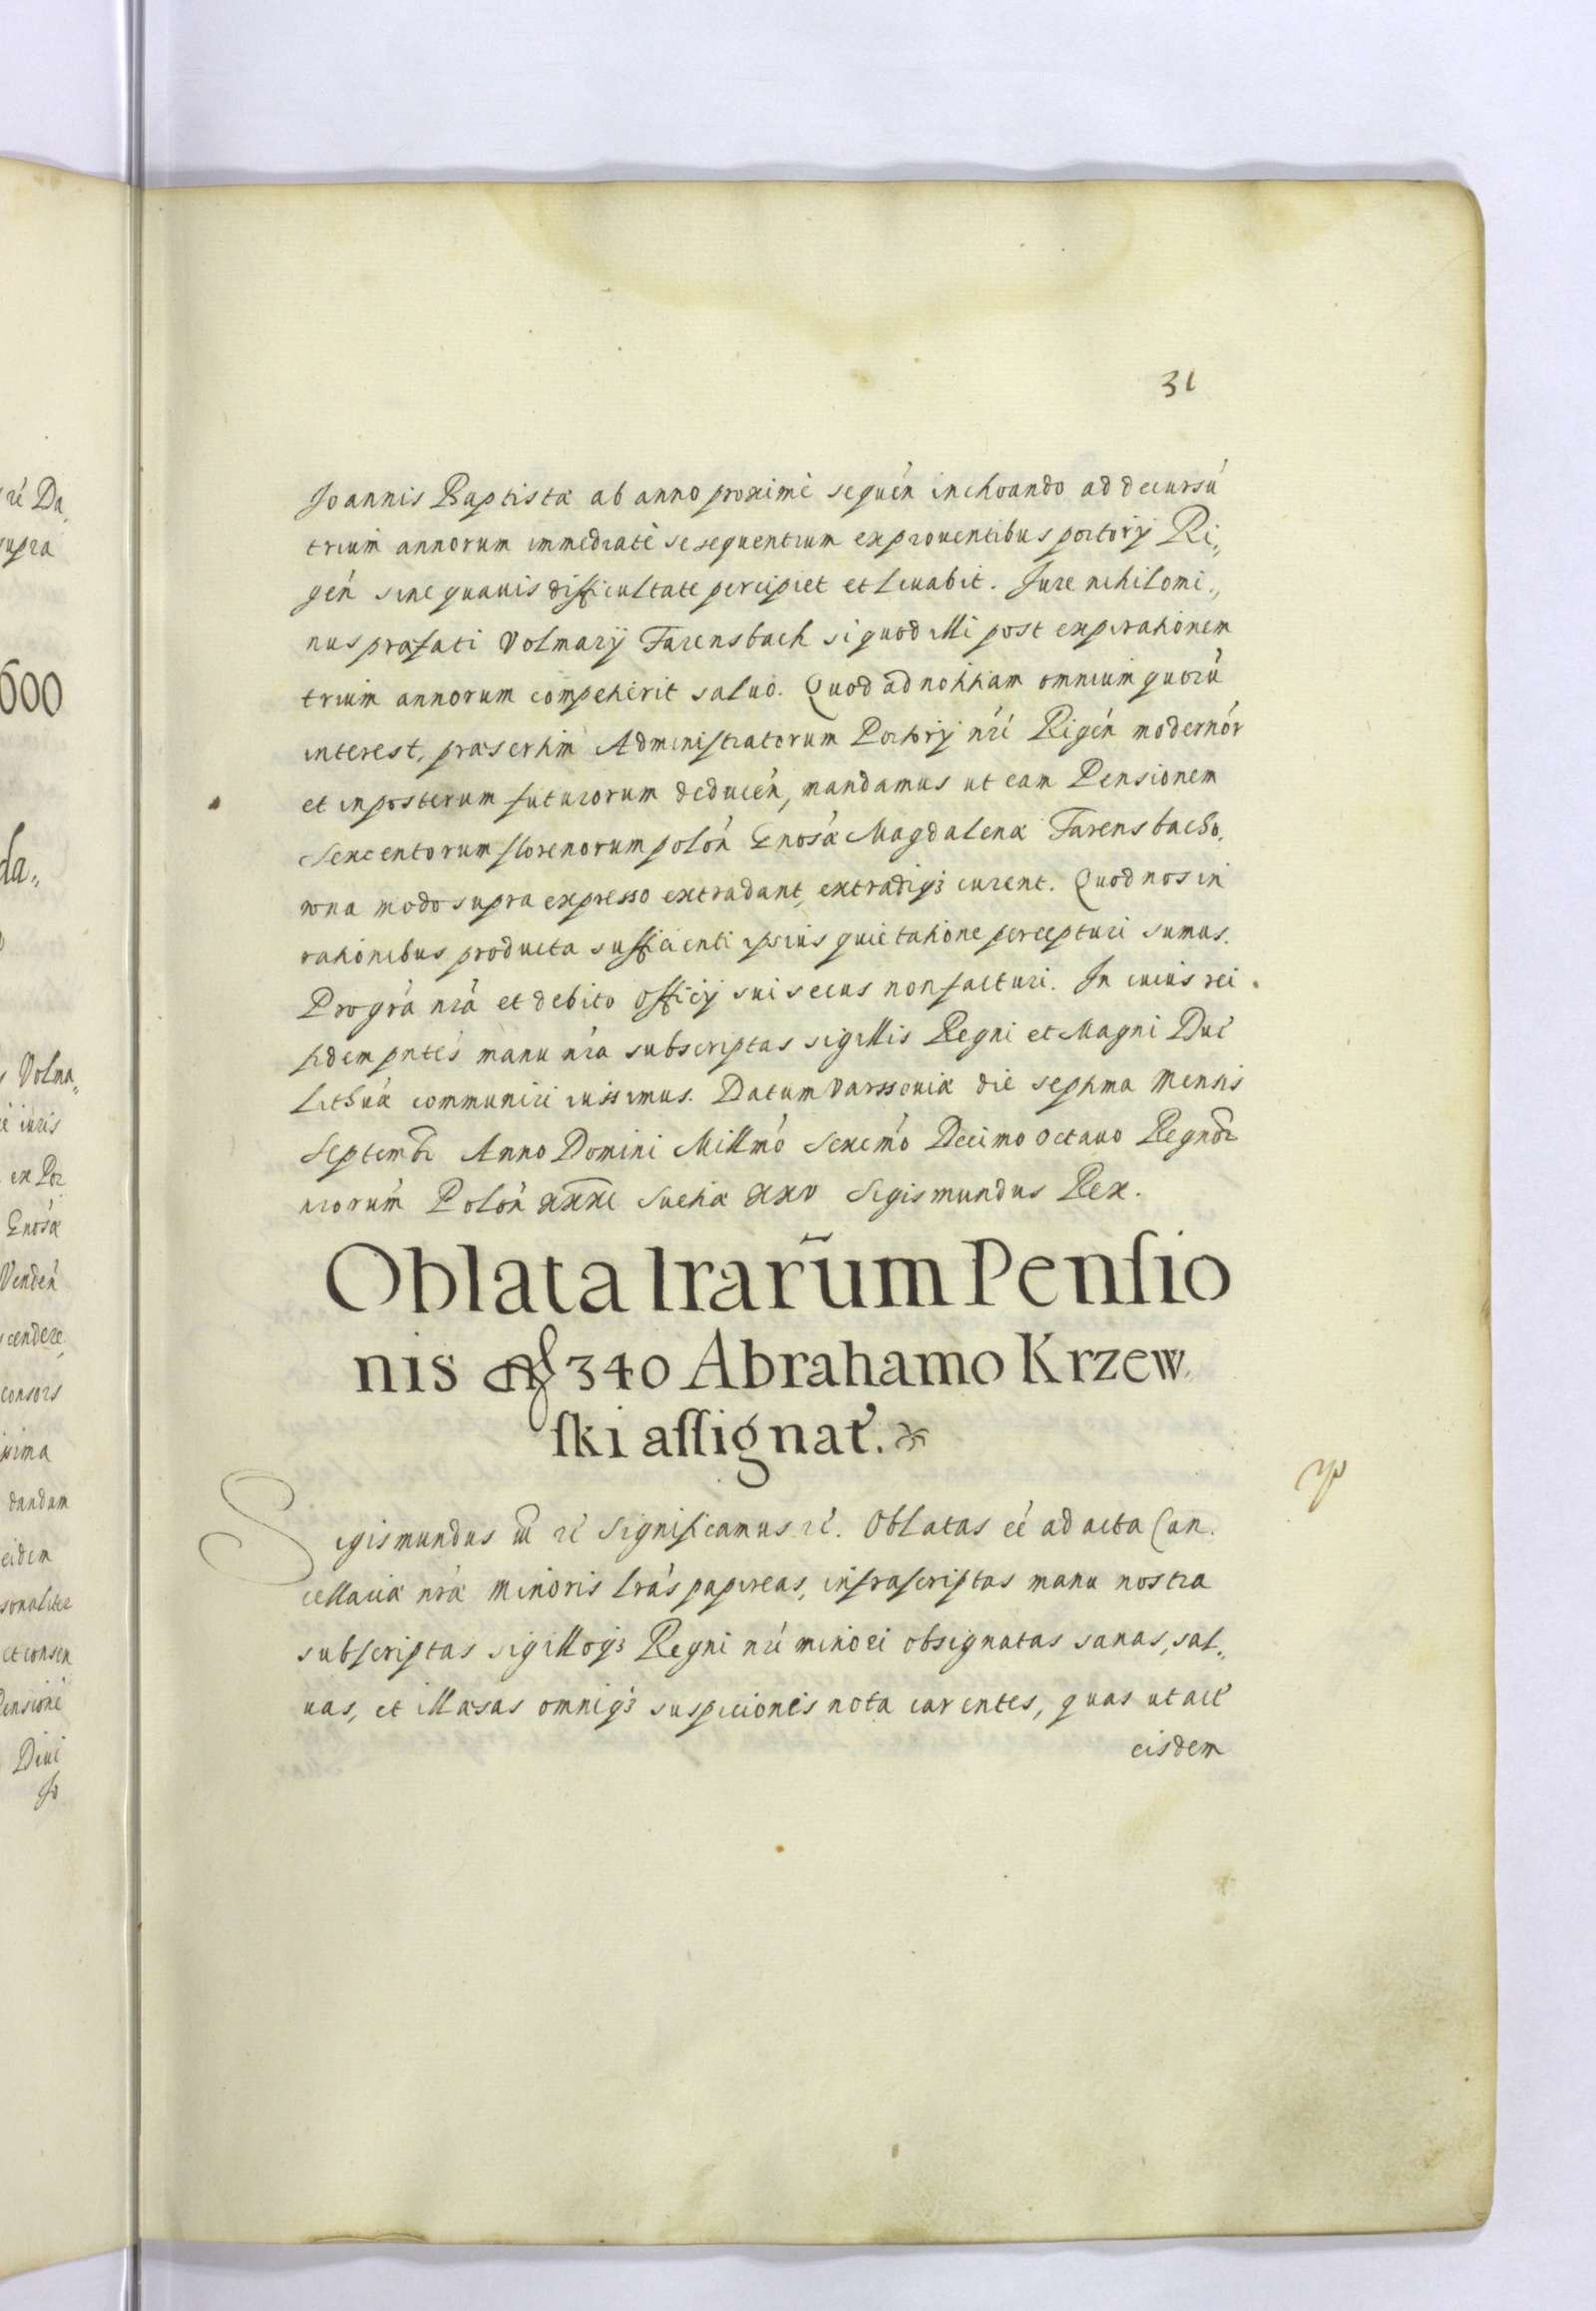 31
Joannis Baptistæ ab anno proximè sequeń inchoando ad decursú
trium annorum immediatè se sequentium ex prouentibus portorij Ri„
geń sine quauis difficultate percipiet et leuabit. Jure nihilomi„
nus præfati Volmarij Farensbach si quod illi post expirationem
trium annorum competierit saluo. Quod ad notitiam omnium quorú
interest, præsertim Administratorum Portorij nŕi Rigeń modernór
et in posterum futurorum deduceń, mandamus ut eam Pensionem
Sexcentorum florenorum poloń Gnosæ Magdalenæ Farensbacho„
wna modo supra expresso extradant, extradiq3 curent. Quod nos in
rationibus producta sufficienti ipsius quietatione percepturi sumus.
Pro gŕa nŕa et debito officij sui secus non facturi. In cuius rei
fidem pŕntes manu nŕa subscriptas sigillis Regni et Magni Duć
Lithuæ communiri iussimus. Datum Varssouiæ die septima Mensis
Septembr Anno Domini Millmó Sexcmó Decimo octauo Regnor
nŕorum Poloń xxxi Sueciæ xxv Sigismundus Rex.
Oblata lrarum Pensio
nis fl 340 Abrahamo Krzew„
ski assignat.
Sigismundus III rć Significamus rć. Oblatas eé ad acta Can„
cellariæ nŕæ minoris lrás papireas, infrascriptas manu nostra
subscriptas sigilloq3 Regni nŕi minori obsignatas sanas, sal„
uas, et illæsas omniq3 suspicionis nota carentes, quas ut acť
eisdem
ré Da„
supra
600
da„
Volma„
iuris
ex Por
Gnosæ
Vendeń
cendere
consors
dandam
eidem
sonaliter
et consen
Pensioni
Diui
Jo